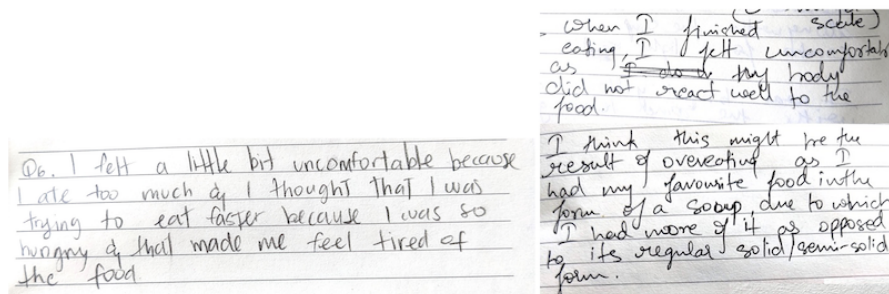 Q6. I felt a little bit uncomfortable because
I ate too much & I thought that I was
trying to eat faster because I was so
hungry & that made me feel tired of
the food
scale)
when I finished
eating, I felt uncomfortab
as I do d my body
did not react well to the
food.
I think this might be the
result of overeating as I
had my favourite food in the
form of a soup, due to which
I had more of it as opposed
to its regular solid/semi-solid
form.